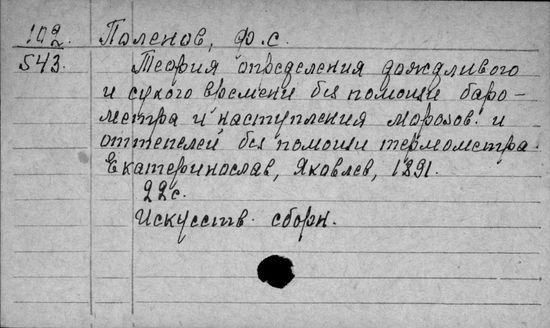 102. Поленов, Ф.С.
543. Теория определения дождливого
и сухого времени без помощи баро-
метра и наступления морозов и
оттепелей без помощи термометра.
Екатеринослав, Яковлев, 1891.
22с.
Искусств. сборн.